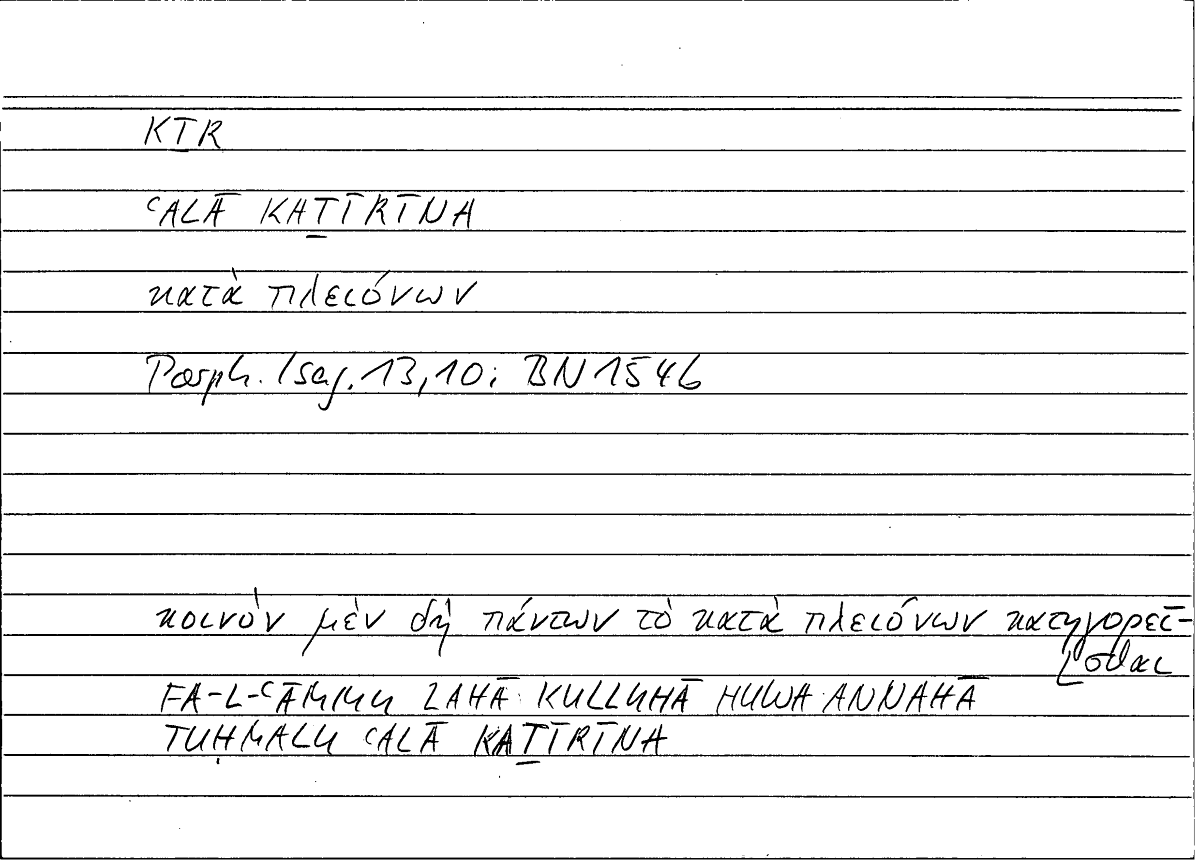 KṮR
ʿALĀ KAṮĪRĪNA
κατὰ πλειόνων
Porph. Isag. 13,10; BN 154b
κοινὸν μὲν δὴ πάντων τὸ κατὰ πλειόνων κατηγορεῖ-
[σθαι
FA-L-ʿĀMMU LAHĀ KULLUHĀ HUWA ANNAHĀ
TUḤMALU ʿALĀ KAṮĪRĪNA